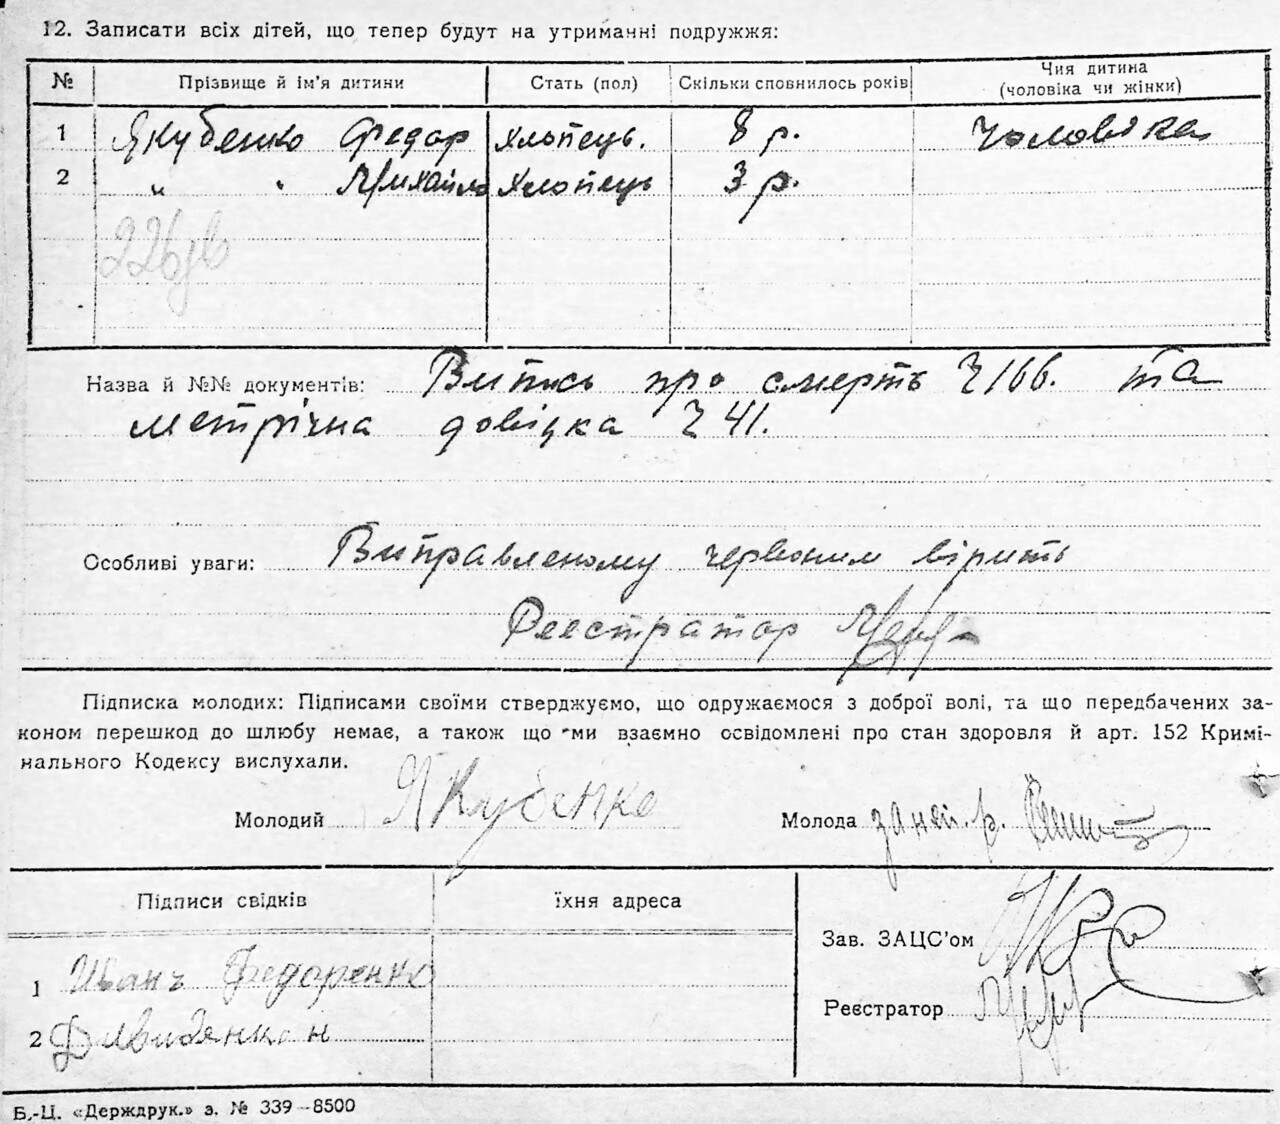 12. Записати всіх дітей, що тепер будут на утриманні подружжя:
№ Прізвище й ім'я дитини Стать (пол) Скільки сповнилось років Чия дитина (чоловіка чи жінки)
1 Якубенко Федар хлопець. 8 р. Чоловіка
2 " " Михайло хлопець 3 р.
Назва й №№ документів: Витпсь про смерть Ч 166. та
метрічна довідка Ч 41.
Особливі уваги: Виправленому червоним вірить
Реєстратор
Підписка молодих: Підписами своїми стверджуємо, що одружаємося з доброї волі, та що передбачених за-
коном перешкод до шлюбу немає, а також що ми взаємно освідомлені про стан здоровля й арт. 152 Кримі-
нального Кодексу вислухали.
Молодий Якубенко Молода за неї. р.
Підписи свідків їхня адреса
Зав. ЗАЦС'ом
1 Иванъ Федоренко
Реєстратор
2
Б.-Ц. «Держдрук.» з. № 339-8500